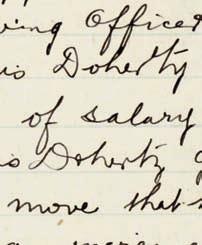 ving Officer
is Doherty
of salary
is Doherty
move that